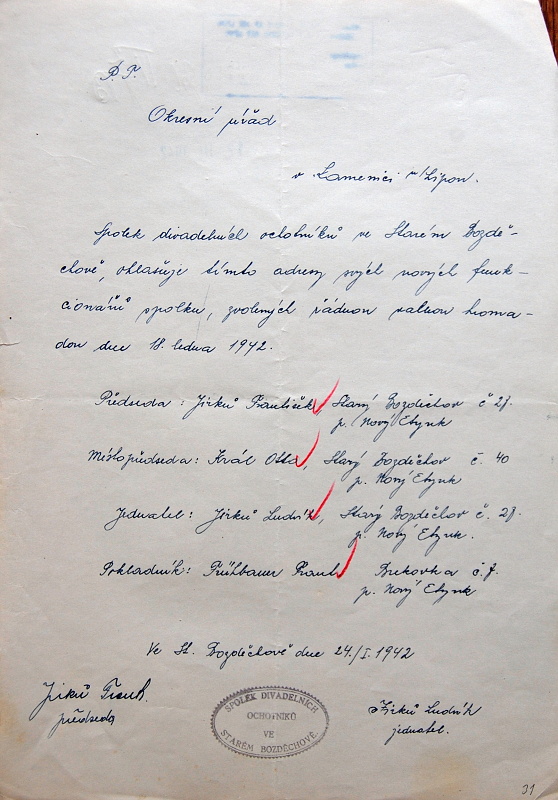 P. T.
Okresní úřad
v Kamenici n/Lipou.
Spolek divadelních ochotníků ve Starém Bozdě-
chově, ohlašuje tímto adresy svých nových funk-
cionářů spolku, zvolených řádnou valnou hroma-
dou dne 18. ledna 1942.
Předseda: Jirků František, Starý Bozděchov č 27.
p. Nový Etynk
Místopředseda: Král Otto, Starý Bozděchov č. 40
p. Nový Etynk
Jednatel: Jirků Ludvík, Starý Bozděchov č. 27.
p. Nový Etynk.
Pokladník: Frühbauer Frant. Brekovka č. 7.
p. Nový Etynk
Ve St. Bozděchově dne 24./I. 1942
Jirků Frant.
předseda
SPOLEK DIVADELNÍCH
OCHOTNÍKŮ
VE
STARÉM BOZDĚCHOVĚ.
Jirků Ludvík
jednatel.
31